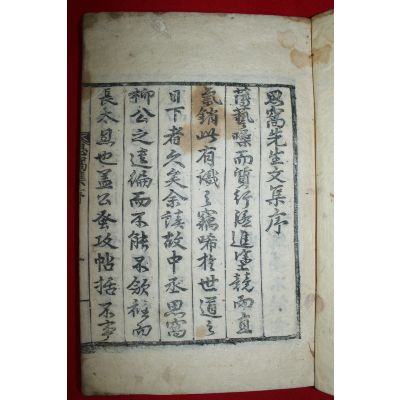 思窩先生文集序
薄藝噪而質行隱進塗競而直
氣銷此有識之竊唏於世道之
日下者久矣余讀故中丞思窩
柳公之遺編而不能不斂衽而
長太息也盖公蚤攻帖括不事